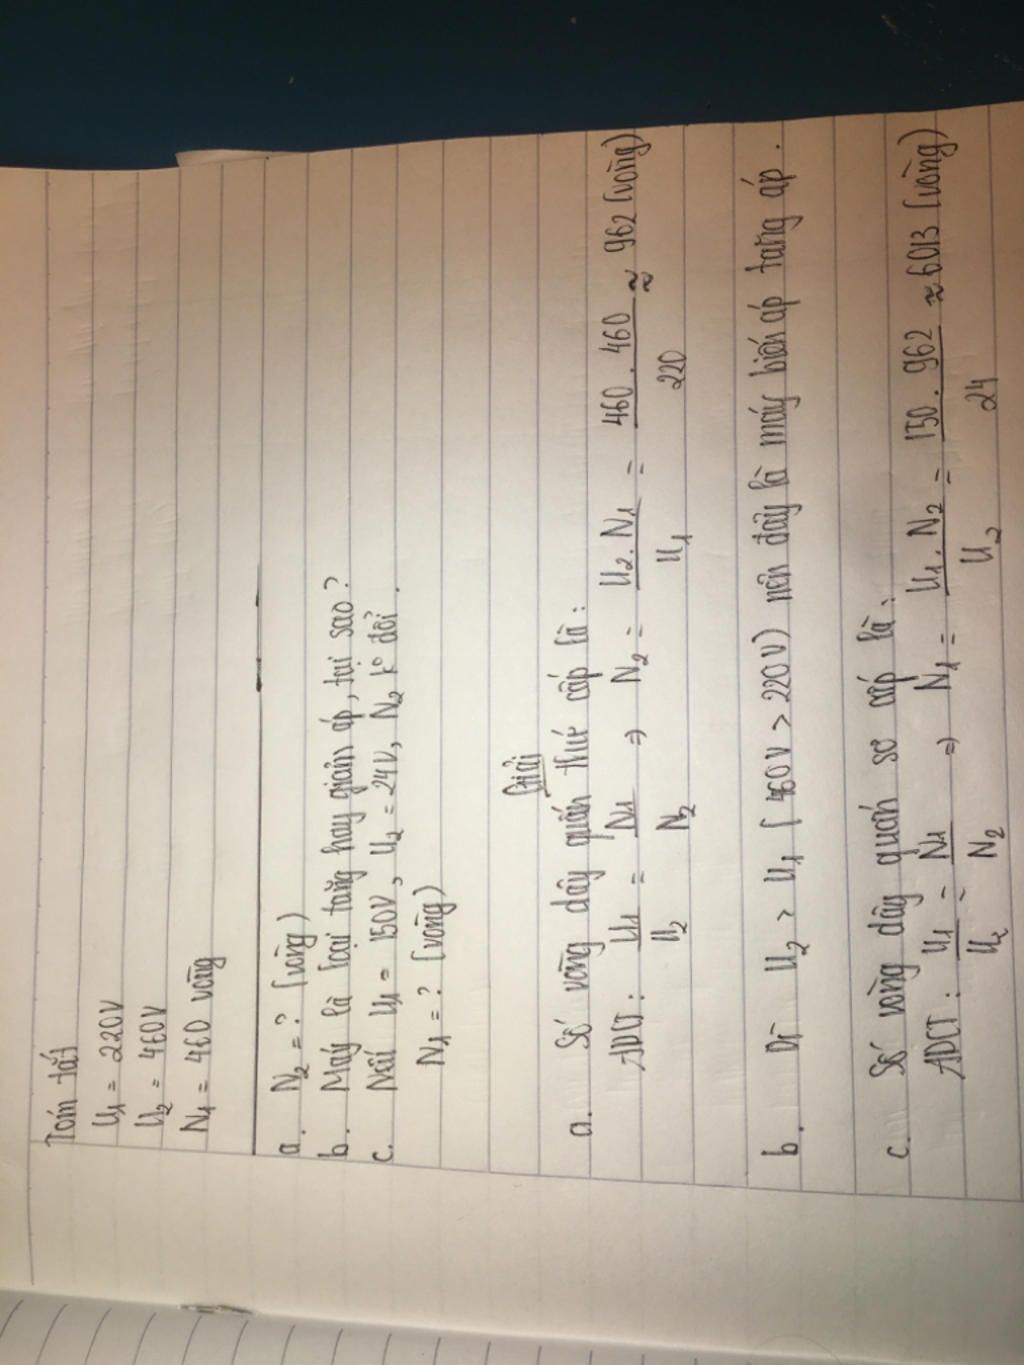 Tóm tắt
U1 = 220V
U2 = 460V
N1 = 460 vòng
a. N2 = ? (vòng)
b. Máy là loại tăng hay giảm áp, tại sao?
c. Nếu U1 = 150V, U2 = 24V, N2 kº đổi.
N1 = ? (vòng)
Giải
a. Số vòng dây quấn thứ cấp là:
ADCT: U1/U2 = N1/N2 => N2 = U2. N1/U1 = 460. 460/220 ≈ 962 (vòng)
b. Dĩ U2 > U1 (460V > 220V) nên đây là máy biến áp tăng áp.
c. Số vòng dây quấn sơ cấp là:
ADCT: U1/U2 = N1/N2 => N1 = U1. N2/U2 = 150. 962/24 ≈ 6013 (vòng)